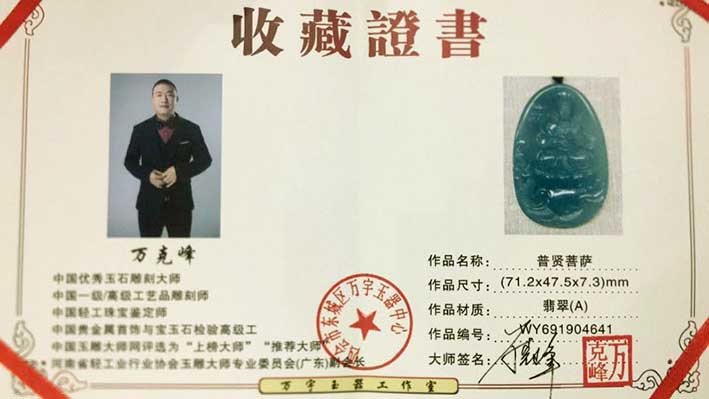 收藏證書
万克峰
中国优秀玉石雕刻大师
中国一级/高级工艺品雕刻师
中国轻工珠宝鉴定师
中国贵金属首饰与宝玉石检验高级工
中国玉雕大师网评选为“上榜大师”“推荐大师”
河南省轻工业行业协会玉雕大师专业委员会(广东)副会长
会市东城区万宇玉器中心
作品名称: 普贤菩萨
作品尺寸: (71.2x47.5x7.3)mm
作品材质: 翡翠(A)
作品编号: WY691904641
大师签名:
万克峰
万宇玉器工作室